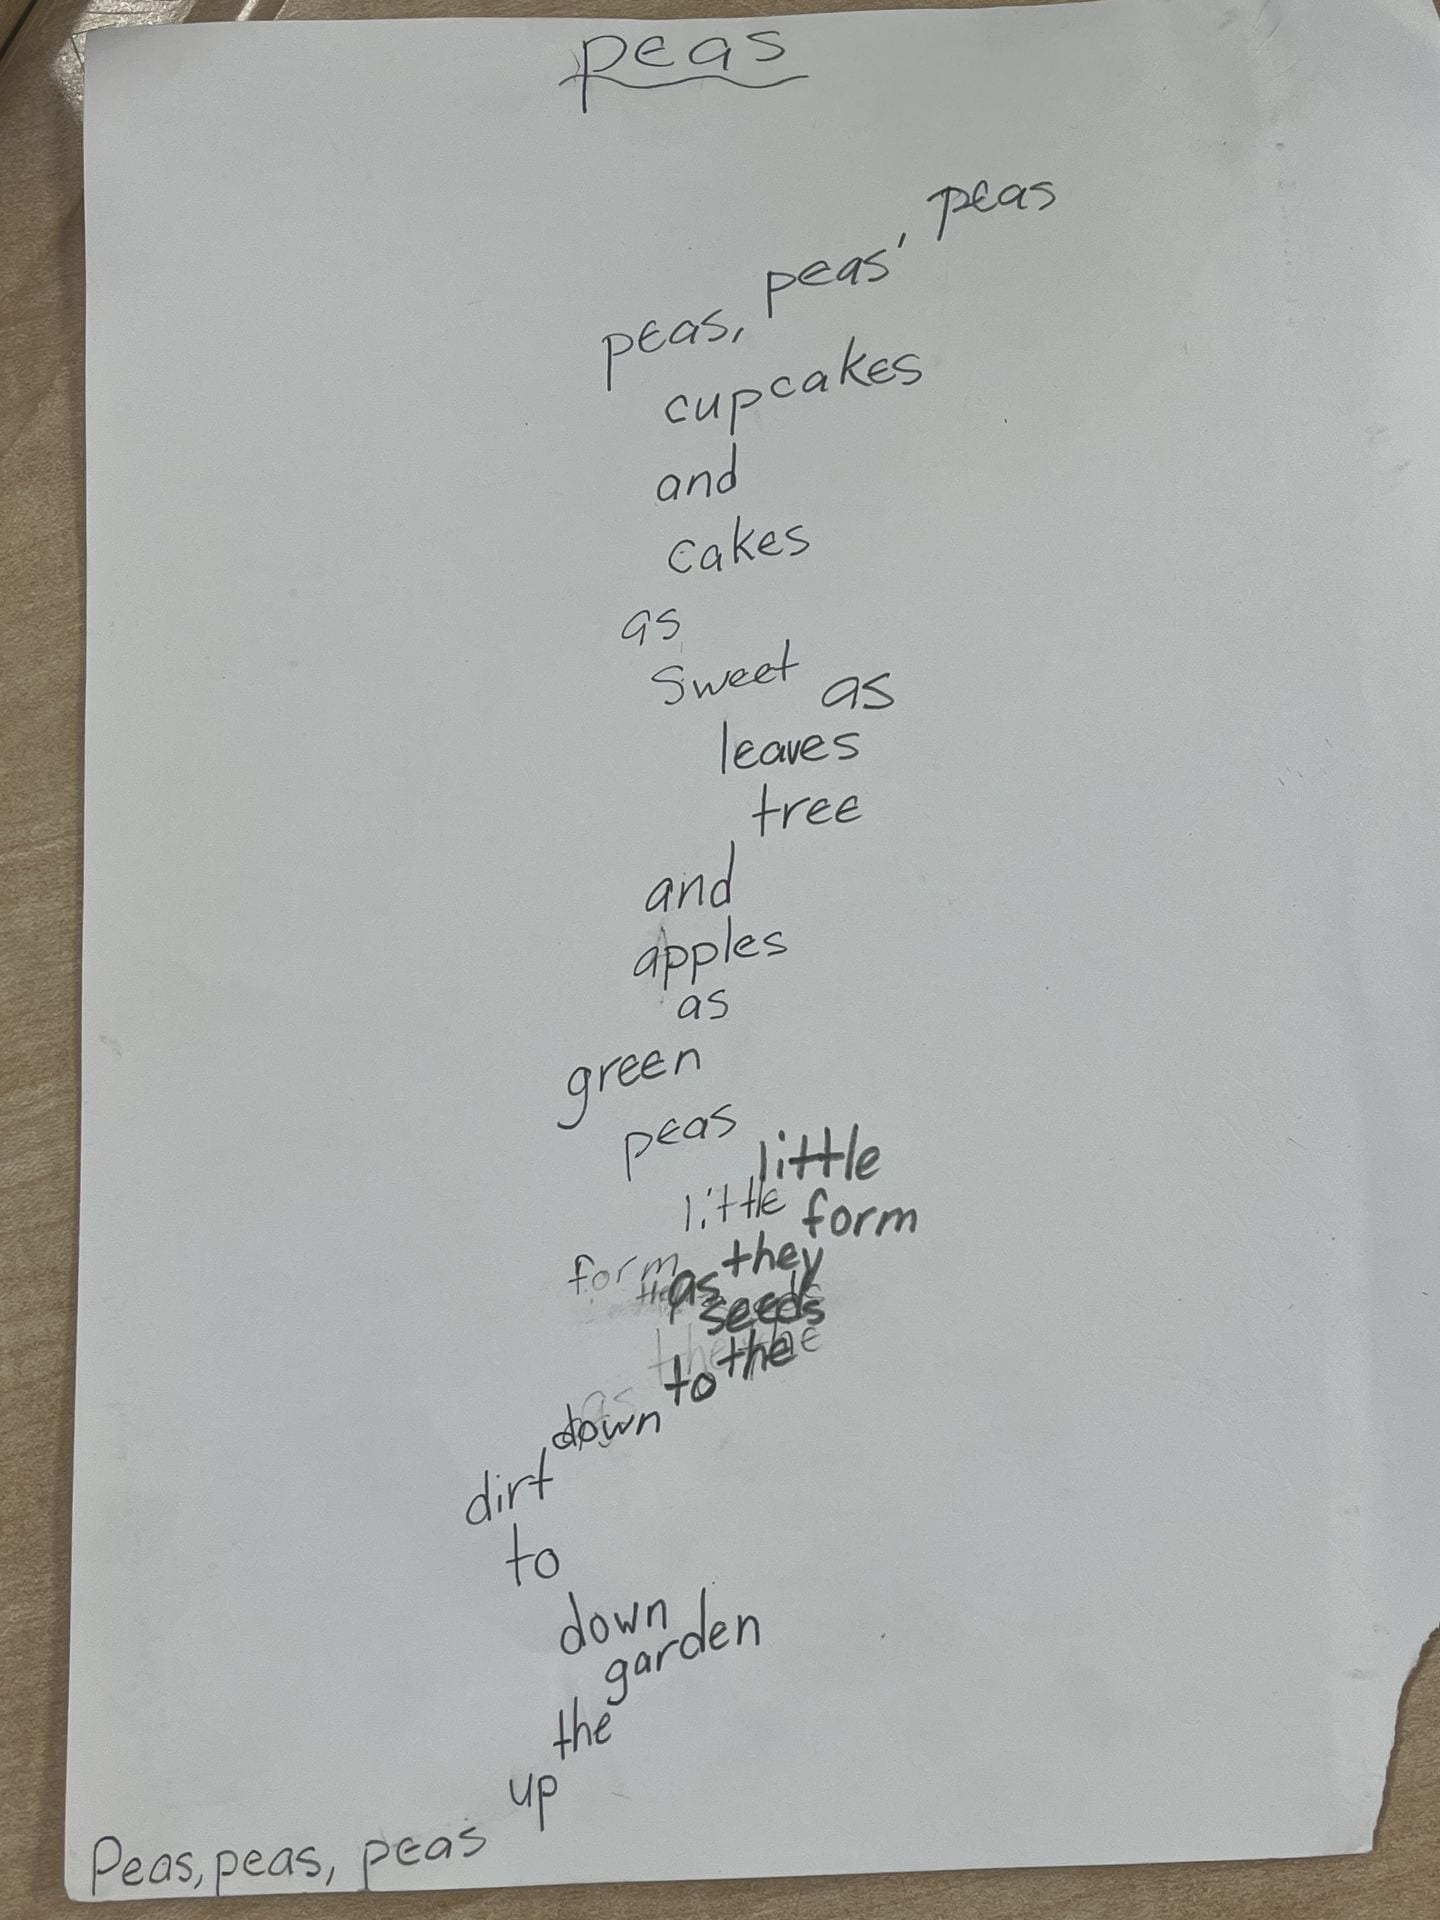 peas
peas, peas, peas
cupcakes
and
cakes
as
sweet as
leaves
tree
and
apples
as
green
peas
little
little
form
form
they
as
seeds
the
to
as
down
dirt
to
down
garden
the
up
Peas, peas, peas